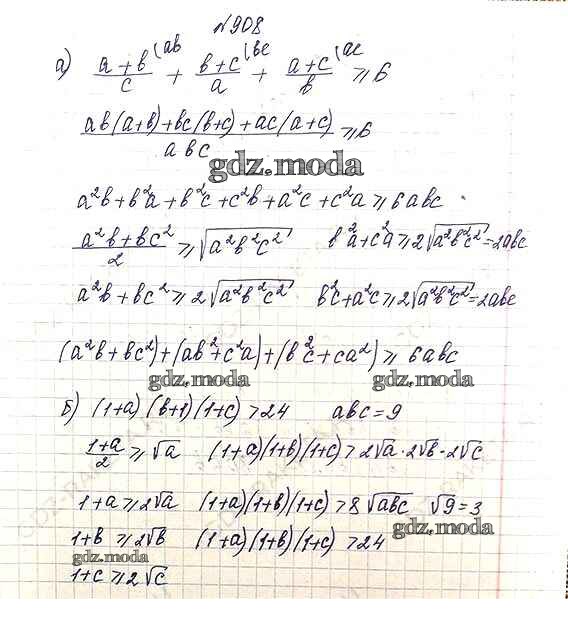 №908
а) (a+b)/c (ab + (b+c)/a (bc + (a+c)/b (ac ⩾ 6
(ab(a+b)+bc(b+c)+ac(a+c))/abc ⩾ 6
gdz.moda
a²b+b²a+b²c+c²b+a²c+c²a ⩾ 6abc
(a²b+bc²)/2 ⩾ √(a²b²c²) b²a+c²a ⩾ 2√(a²b²c²)=2abc
a²b+bc² ⩾ 2√(a²b²c²) b²c+a²c ⩾ 2√(a²b²c²)=2abc
(a²b+bc²)+(ab²+c²a)+(b²c+ca²) ⩾ 6abc
gdz.moda gdz.moda
б) (1+a)(b+1)(1+c)>24 abc=9
(1+a)/2 ⩾ √a (1+a)(1+b)(1+c)>2√a·2√b·2√c
1+a ⩾ 2√a (1+a)(1+b)(1+c)>8√abc √9=3
gdz.moda
1+b ⩾ 2√b (1+a)(1+b)(1+c)>24
gdz.moda
1+c ⩾ 2√c